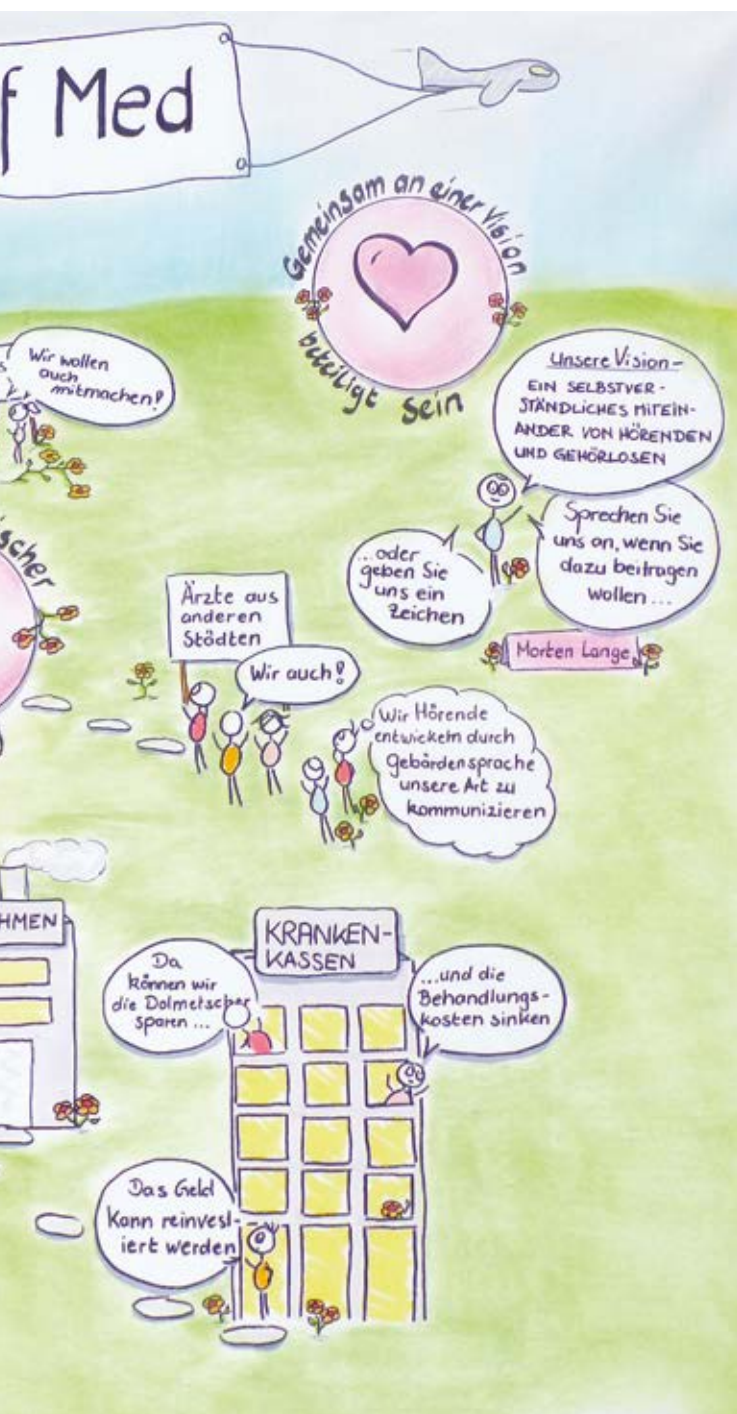 f Med
Gemeinsam an einer Vision
beteiligt sein
Wir wollen
auch
mitmachen!
Unsere Vision –
EIN SELBSTVER-
STÄNDLICHES MITEIN-
ANDER VON HÖRENDEN
UND GEHÖRLOSEN
Sprechen Sie
uns an, wenn Sie
dazu beitragen
wollen ...
...oder
geben Sie
uns ein
Zeichen
Morten Lange
scher
Ärzte aus
anderen
Städten
Wir auch!
Wir Hörende
entwickeln durch
Gebärdensprache
unsere Art zu
kommunizieren
HMEN
KRANKEN-
KASSEN
Da
können wir
die Dolmetscher
sparen ...
...und die
Behandlungs-
kosten sinken
Das Geld
kann reinvest-
iert werden